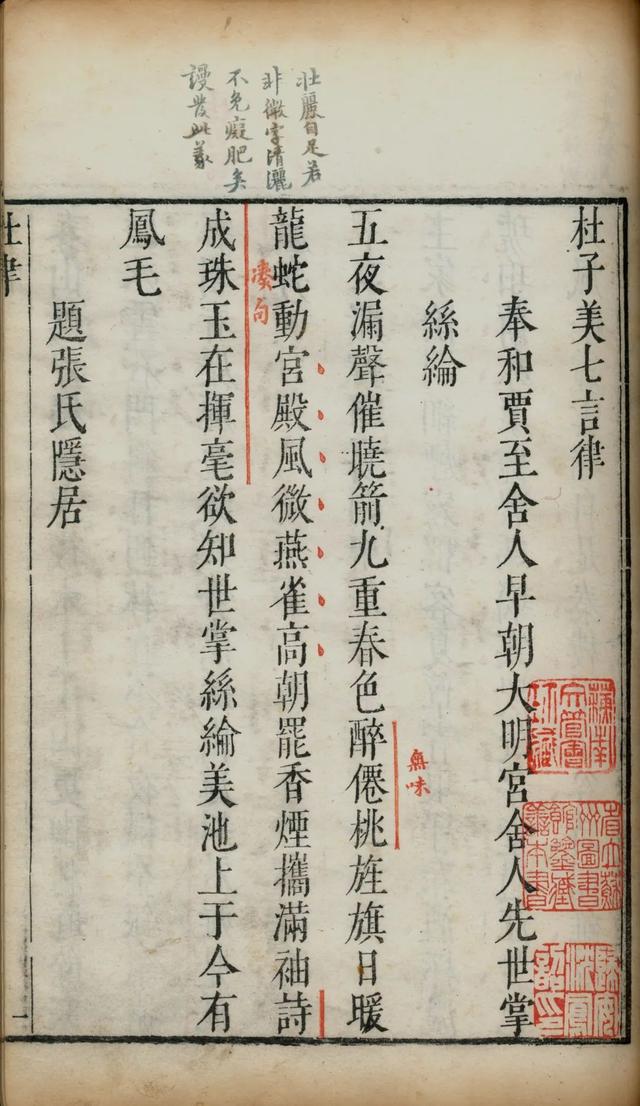 壯麗自足若
非微字清灑
不免癡肥矣
謾發此義
杜子美七言律
奉和賈至舍人早朝大明宮舍人先世掌
絲綸
五夜漏聲催曉箭九重春色醉僊桃旌旗日暖
無味
龍蛇動宮殿風微燕雀高朝罷香煙攜滿袖詩
湊句
成珠玉在揮毫欲知世掌絲綸美池上于今有
鳳毛
題張氏隱居
杜律
一